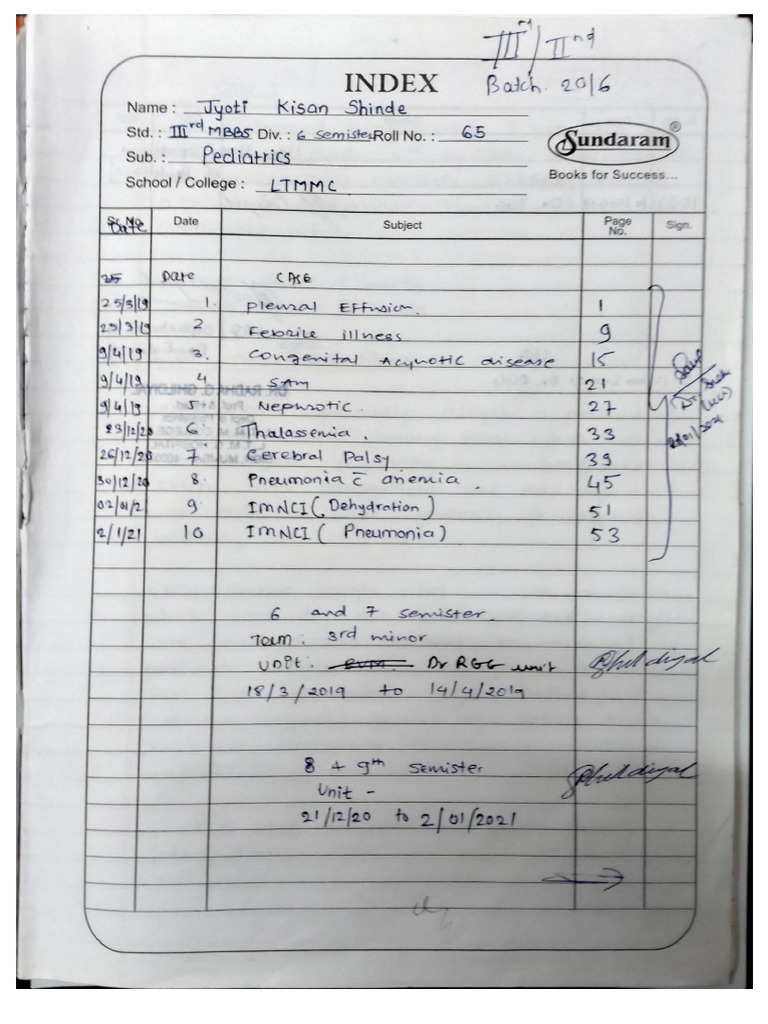 IIIrd/IInd
INDEX
Batch. 2016
Name : Jyoti Kisan Shinde
Std. : IIIrd MBBS Div. : 6 semister Roll No. : 65
Sundaram®
Sub. : Pediatrics
Books for Success...
School / College : LTMMC
Sr. No. Date Date Subject Page No. Sign.
25 Date CASE
25/3/19 1. Pleural Effusion. 1
25/3/19 2 Febrile illness 9
9/4/19 3. Congenital Acynotic disease 15
9/4/19 4 SAM 21
9/4/19 5 Nephrotic. 27
23/12/20 6. Thalassemia. 33
26/12/20 7 Cerebral Palsy 39
30/12/20 8. Pneumonia c̄ anemia. 45
02/01/2 9. IMNCI (Dehydration) 51
2/1/21 10 IMNCI ( Pneumonia) 53
6 and 7 semister.
Team : 3rd minor
Unit : Dr RGG unit Ghildiyal
18/3/2019 to 14/4/2019
8 + 9th semister
Ghildiyal
Unit -
21/12/20 to 2/01/2021